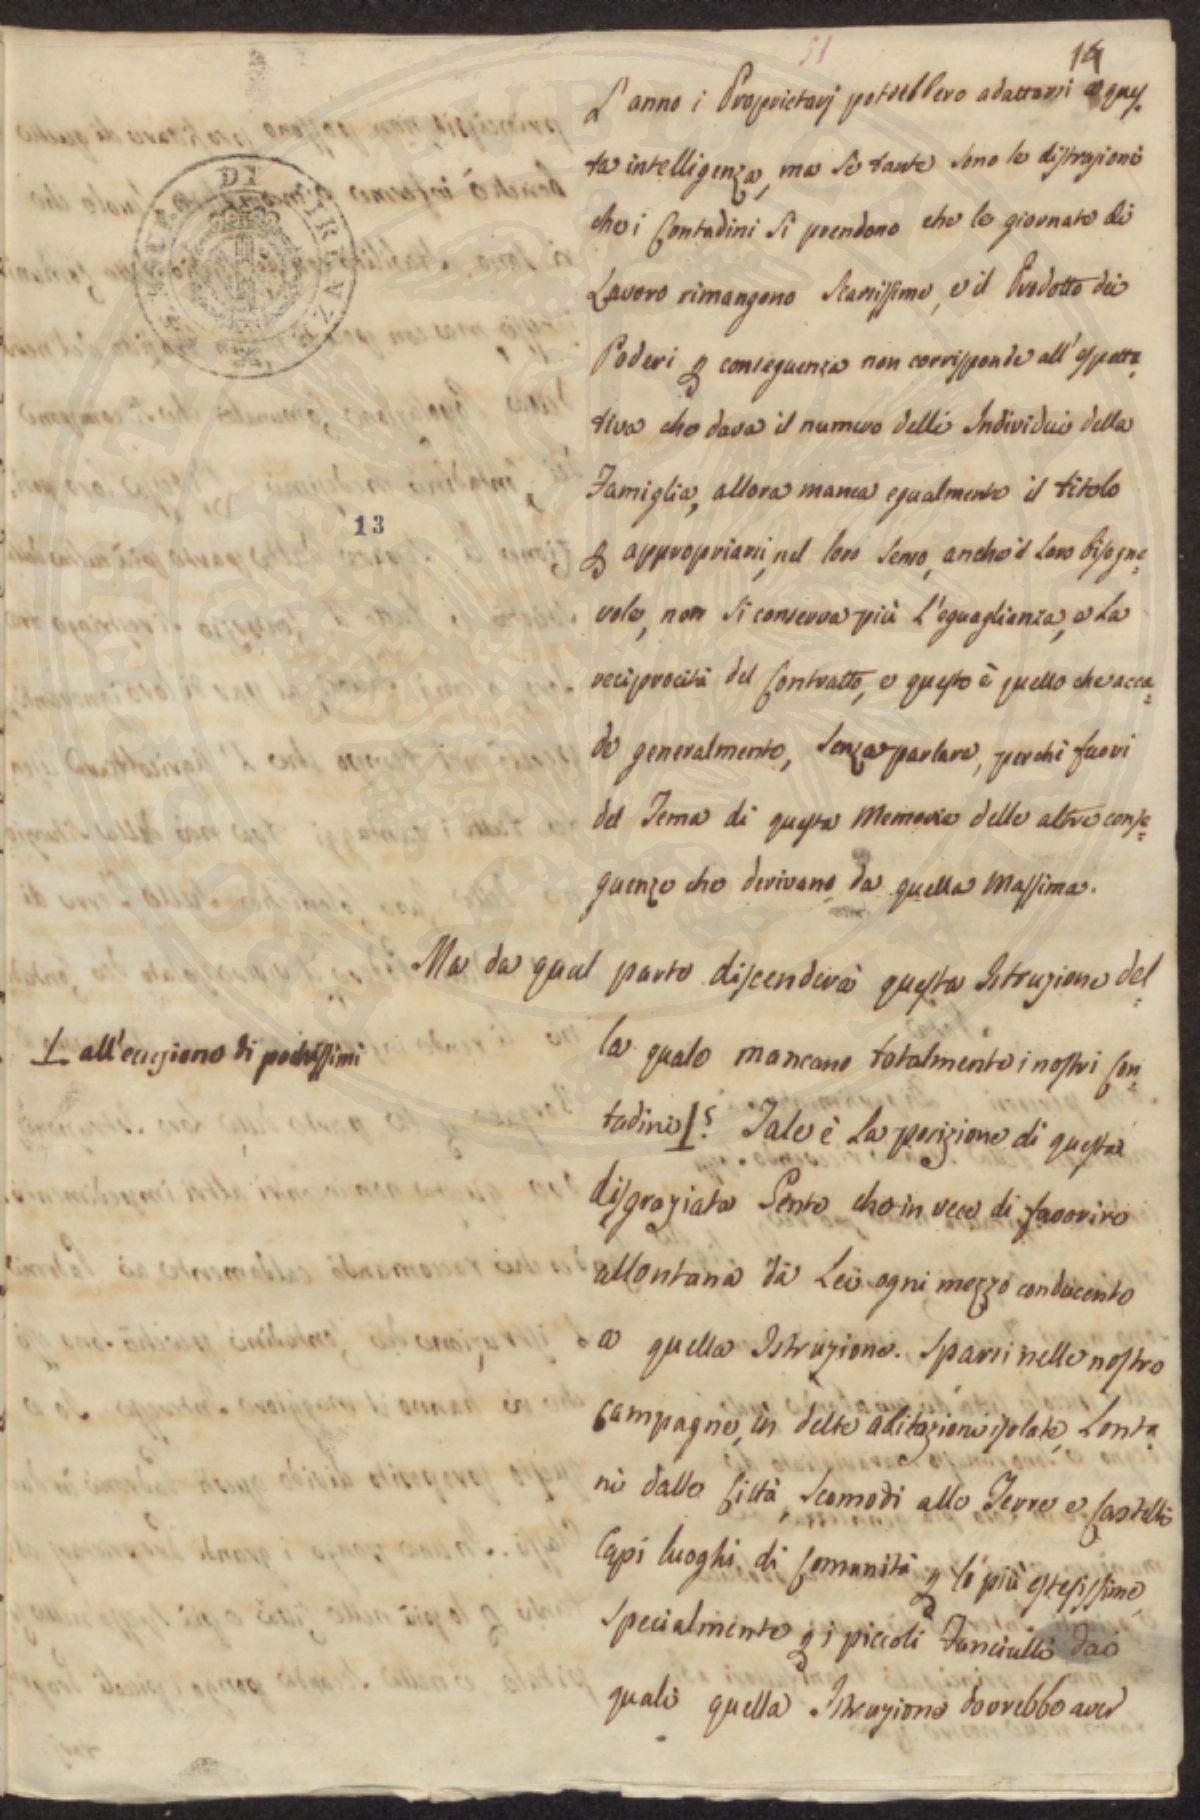 51
14
L'anno i Proprietarj potrebbero adattarsi a ques
ta intelligenza, ma sè tante sono le distrazioni
che i Contadini si prendono che le giornate di
Lavoro rimangono scarsissime, e il Prodotto dei
Poderi p conseguenza non corrisponde all'espetta
tiva che dava il numero delli Individui della
Famiglia, allora manca egualmente il titolo
p appropriarsi, nel loro senso, anche il loro bisogne=
vole, non si conserva più l'eguaglianza, e la
reciprocità del Contratto, e questo è quello che acca=
de generalmente, senza parlare, perchè fuori
del Tema di questa Memoria delle altre conse=
guenze che derivano da quella Massima.
Ma da qual parte discenderà questa Istruzione del=
la quale mancano totalmente i nostri Con=
tadini? Tale è la posizione di questa
disgraziata Gente che in vece di favorire
allontana da Lei ogni mezzo conducente
a quella Istruzione. Sparsi nelle nostre
Campagne, in delle abitazioni isolate, Lonta
ni dalle Città, scomodi alle Terre e Castelli
Capi luoghi di Comunità p lo più estesissime,
specialmente p i piccoli Fanciulli dai
quali quella Istruzione dovrebbe aver
all'eccezione di pochissimi
13
DI FIRENZE